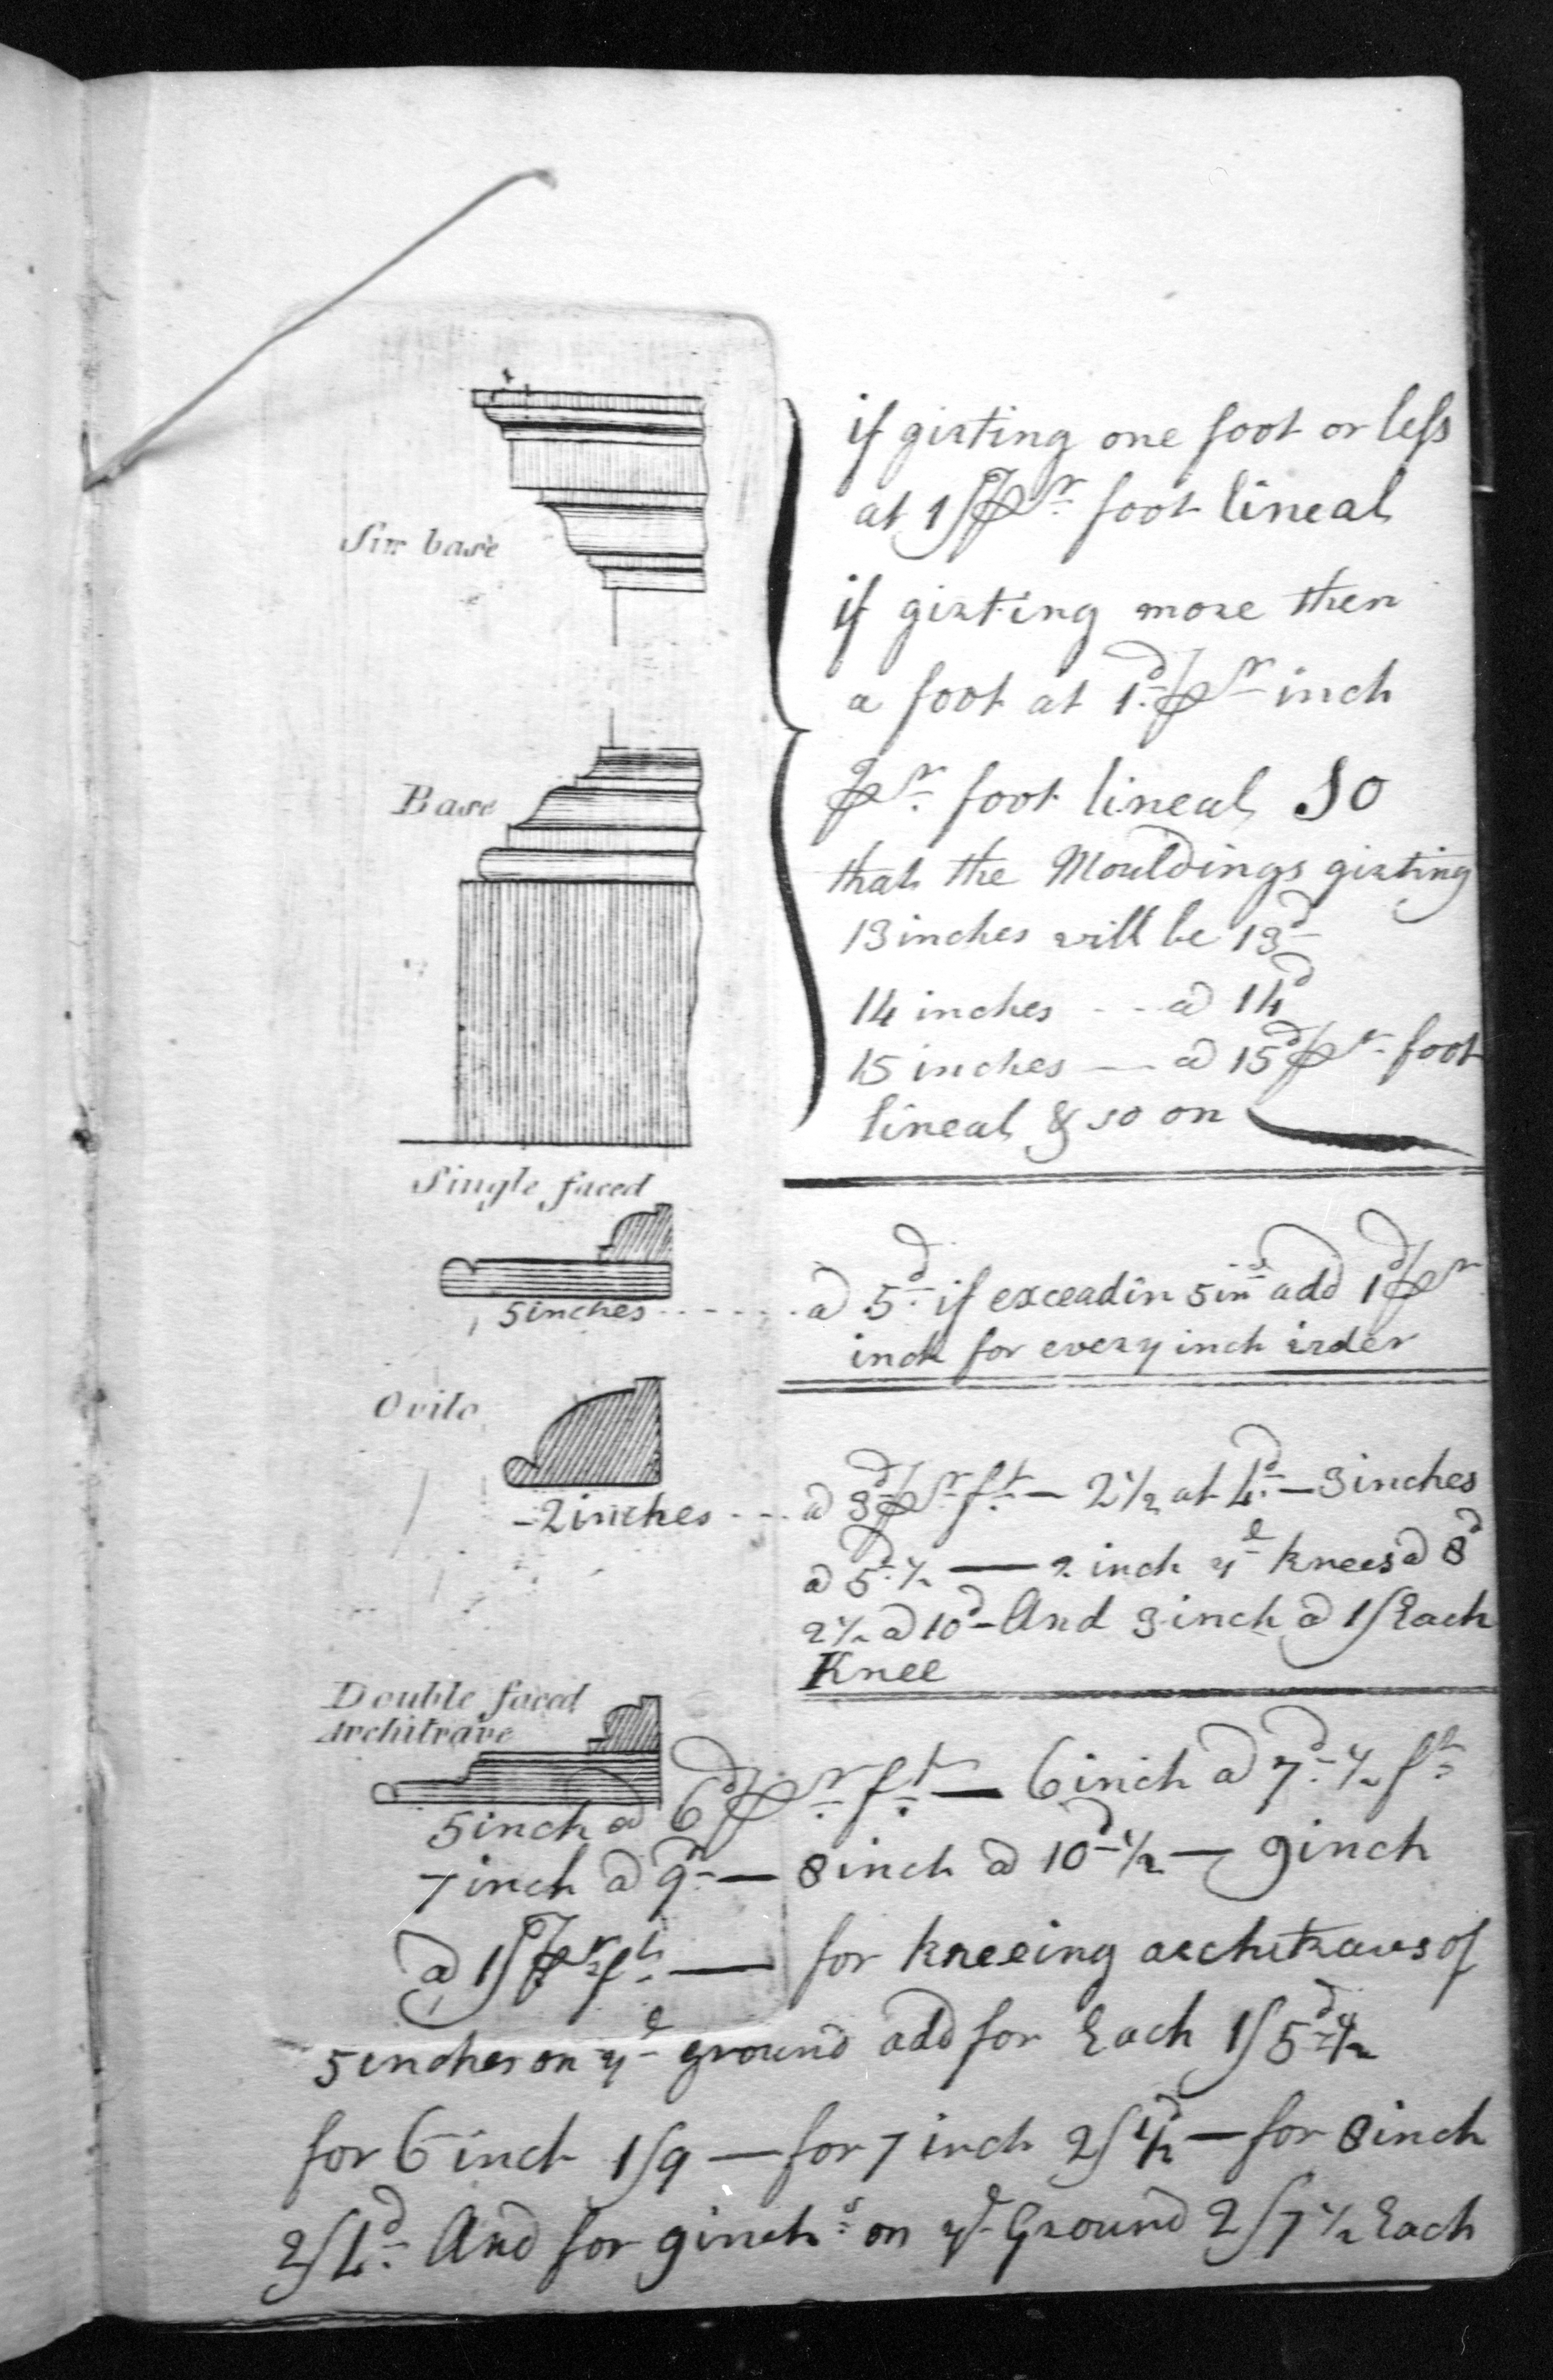 Sur base
if girting one foot or less
at 1/ pr foot lineal
if girting more then
a foot at 1d pr inch
pr foot lineal so
that the Mouldings girting
13 inches will be 13d
14 inches - - a 14d
15 inches — a 15d pr foot
lineal & so on
Base
Single faced
5 inches - - - - - a 5d if exceadin 5in add 1d pr
inch for every inch
Ovilo
2 inches - - - a 3d pr ft — 2½ at 4d — 3 inches
a 5d ½ — 2 inch ye knees a 8d
2½ a 10d - And 3 inch a 1/ Each
Knee
Double faced
Architrave
5 inch a 6d pr ft — 6 inch a 7d ½ ft
7 inch a 9d — 8 inch a 10d ½ — 9 inch
a 1/ pr ft — for kneeing architraves of
5 inches on ye ground add for Each 1/5d ½
for 6 inch 1/9 — for 7 inch 2/ ½d — for 8 inch
2/4d And for 9 inchs on ye Ground 2/7 ½ Each